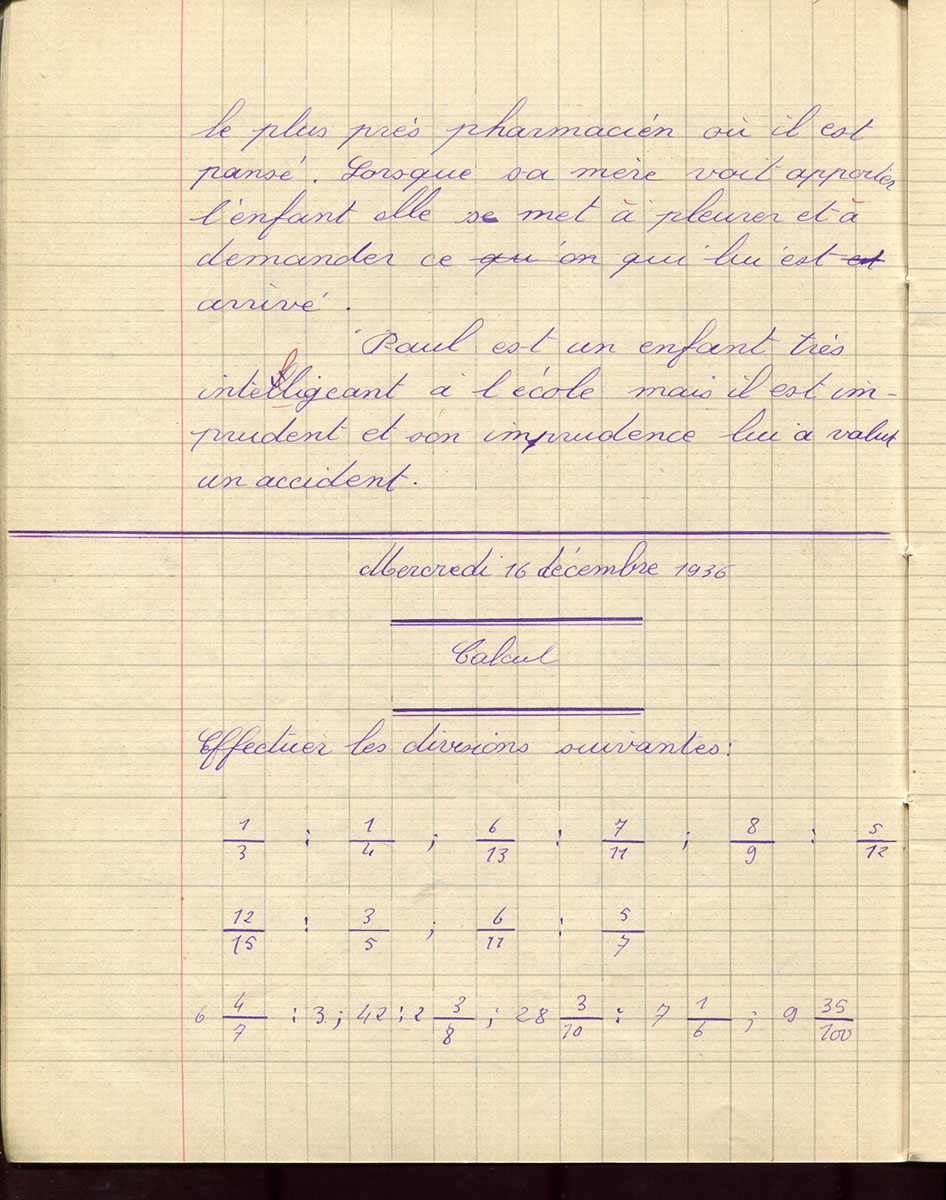 le plus près pharmacien où il est
pansé. Lorsque sa mère voit apporter
l'enfant elle se met à pleurer et à
demander ce qu'on qui lui est et
arrivé.
Paul est un enfant très
intelligeant à l'école mais il est im-
prudent et son imprudence lui a valut
un accident.
Mercredi 16 décembre 1936
Calcul
Effectuer les divisions suivantes:
1/3 : 1/4 ; 6/13 : 7/11 ; 8/9 : 5/12
12/15 : 3/5 ; 6/11 : 5/7
6 4/7 : 3 ; 42 : 2 3/8 ; 28 3/10 : 7 1/6 ; 9 35/100